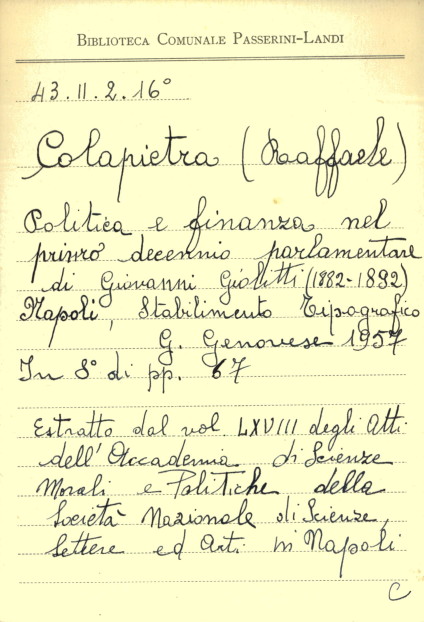 BIBLIOTECA COMUNALE PASSERINI-LANDI
43.II.2.16°
Colapietra (Raffaele)
Politica e finanza nel
primo decennio parlamentare
di Giovanni Giolitti (1882-1892)
Napoli, Stabilimento Tipografico
G. Genovese 1957
In 8° di pp. 67
Estratto dal vol. LXVIII degli Atti
dell'Accademia di Scienze
Morali e Politiche della
Società Nazionale di Scienze,
Lettere ed Arti in Napoli
C